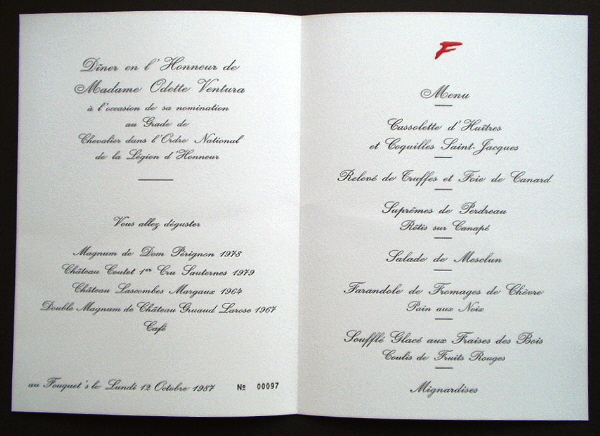 Dîner en l'Honneur de
Madame Odette Ventura
à l'occasion de sa nomination
au Grade de
Chevalier dans l'Ordre National
de la Légion d'Honneur
Vous allez déguster
Magnum de Dom Pérignon 1978
Château Coutet 1er Cru Sauternes 1979
Château Lascombes Margaux 1964
Double Magnum de Château Gruaud Larose 1967
Café
au Fouquet's le Lundi 12 Octobre 1987 № 00097
F
Menu
Cassolette d'Huîtres
et Coquilles Saint-Jacques
Relevé de Truffes et Foie de Canard
Suprêmes de Perdreau
Rôtis sur Canapé
Salade de Mesclun
Farandole de Fromages de Chèvre
Pain aux Noix
Soufflé Glacé aux Fraises des Bois
Coulis de Fruits Rouges
Mignardises